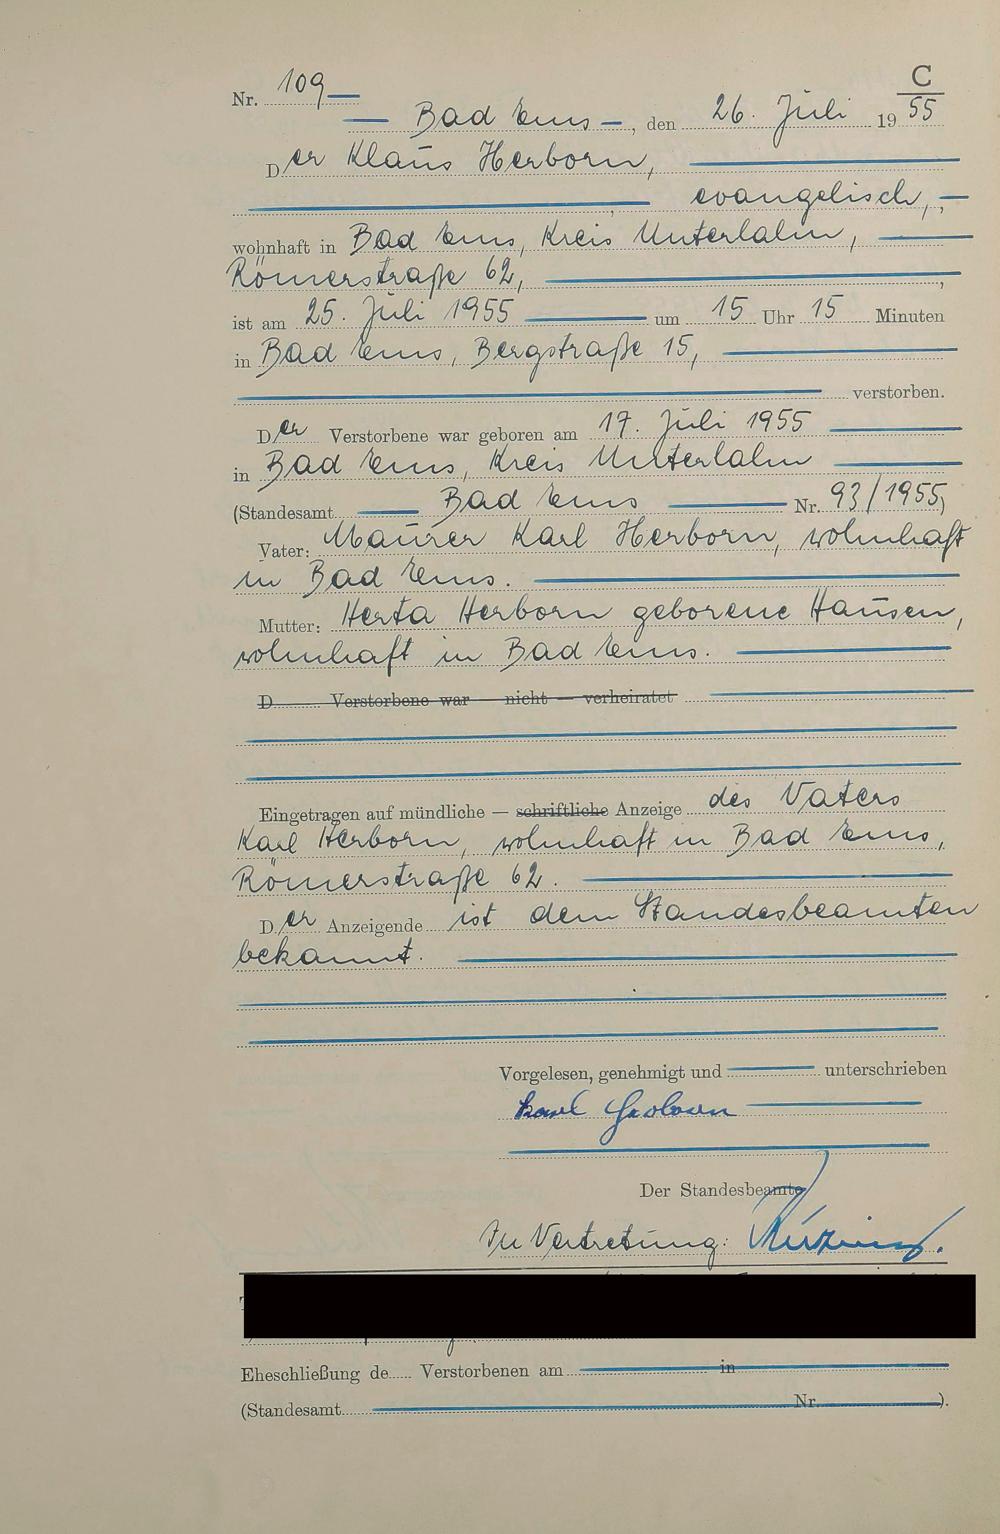 C
Nr. 109
Bad Ems, den 26. Juli 1955
Der Klaus Herborn,
evangelisch,
wohnhaft in Bad Ems, Kreis Unterlahn,
Römerstraße 62,
ist am 25. Juli 1955 um 15 Uhr 15 Minuten
in Bad Ems, Bergstraße 15,
verstorben.
Der Verstorbene war geboren am 17. Juli 1955
in Bad Ems, Kreis Unterlahn
(Standesamt Bad Ems Nr. 93/1955)
Vater: Maurer Karl Herborn, wohnhaft
in Bad Ems.
Mutter: Herta Herborn geborene Hausen,
wohnhaft in Bad Ems.
D Verstorbene war — nicht — verheiratet
Eingetragen auf mündliche — schriftliche Anzeige des Vaters
Karl Herborn, wohnhaft in Bad Ems,
Römerstraße 62.
Der Anzeigende ist dem Standesbeamten
bekannt.
Vorgelesen, genehmigt und unterschrieben
Karl Herborn
Der Standesbeamte
In Vertretung:
Eheschließung de Verstorbenen am in
(Standesamt Nr. ).